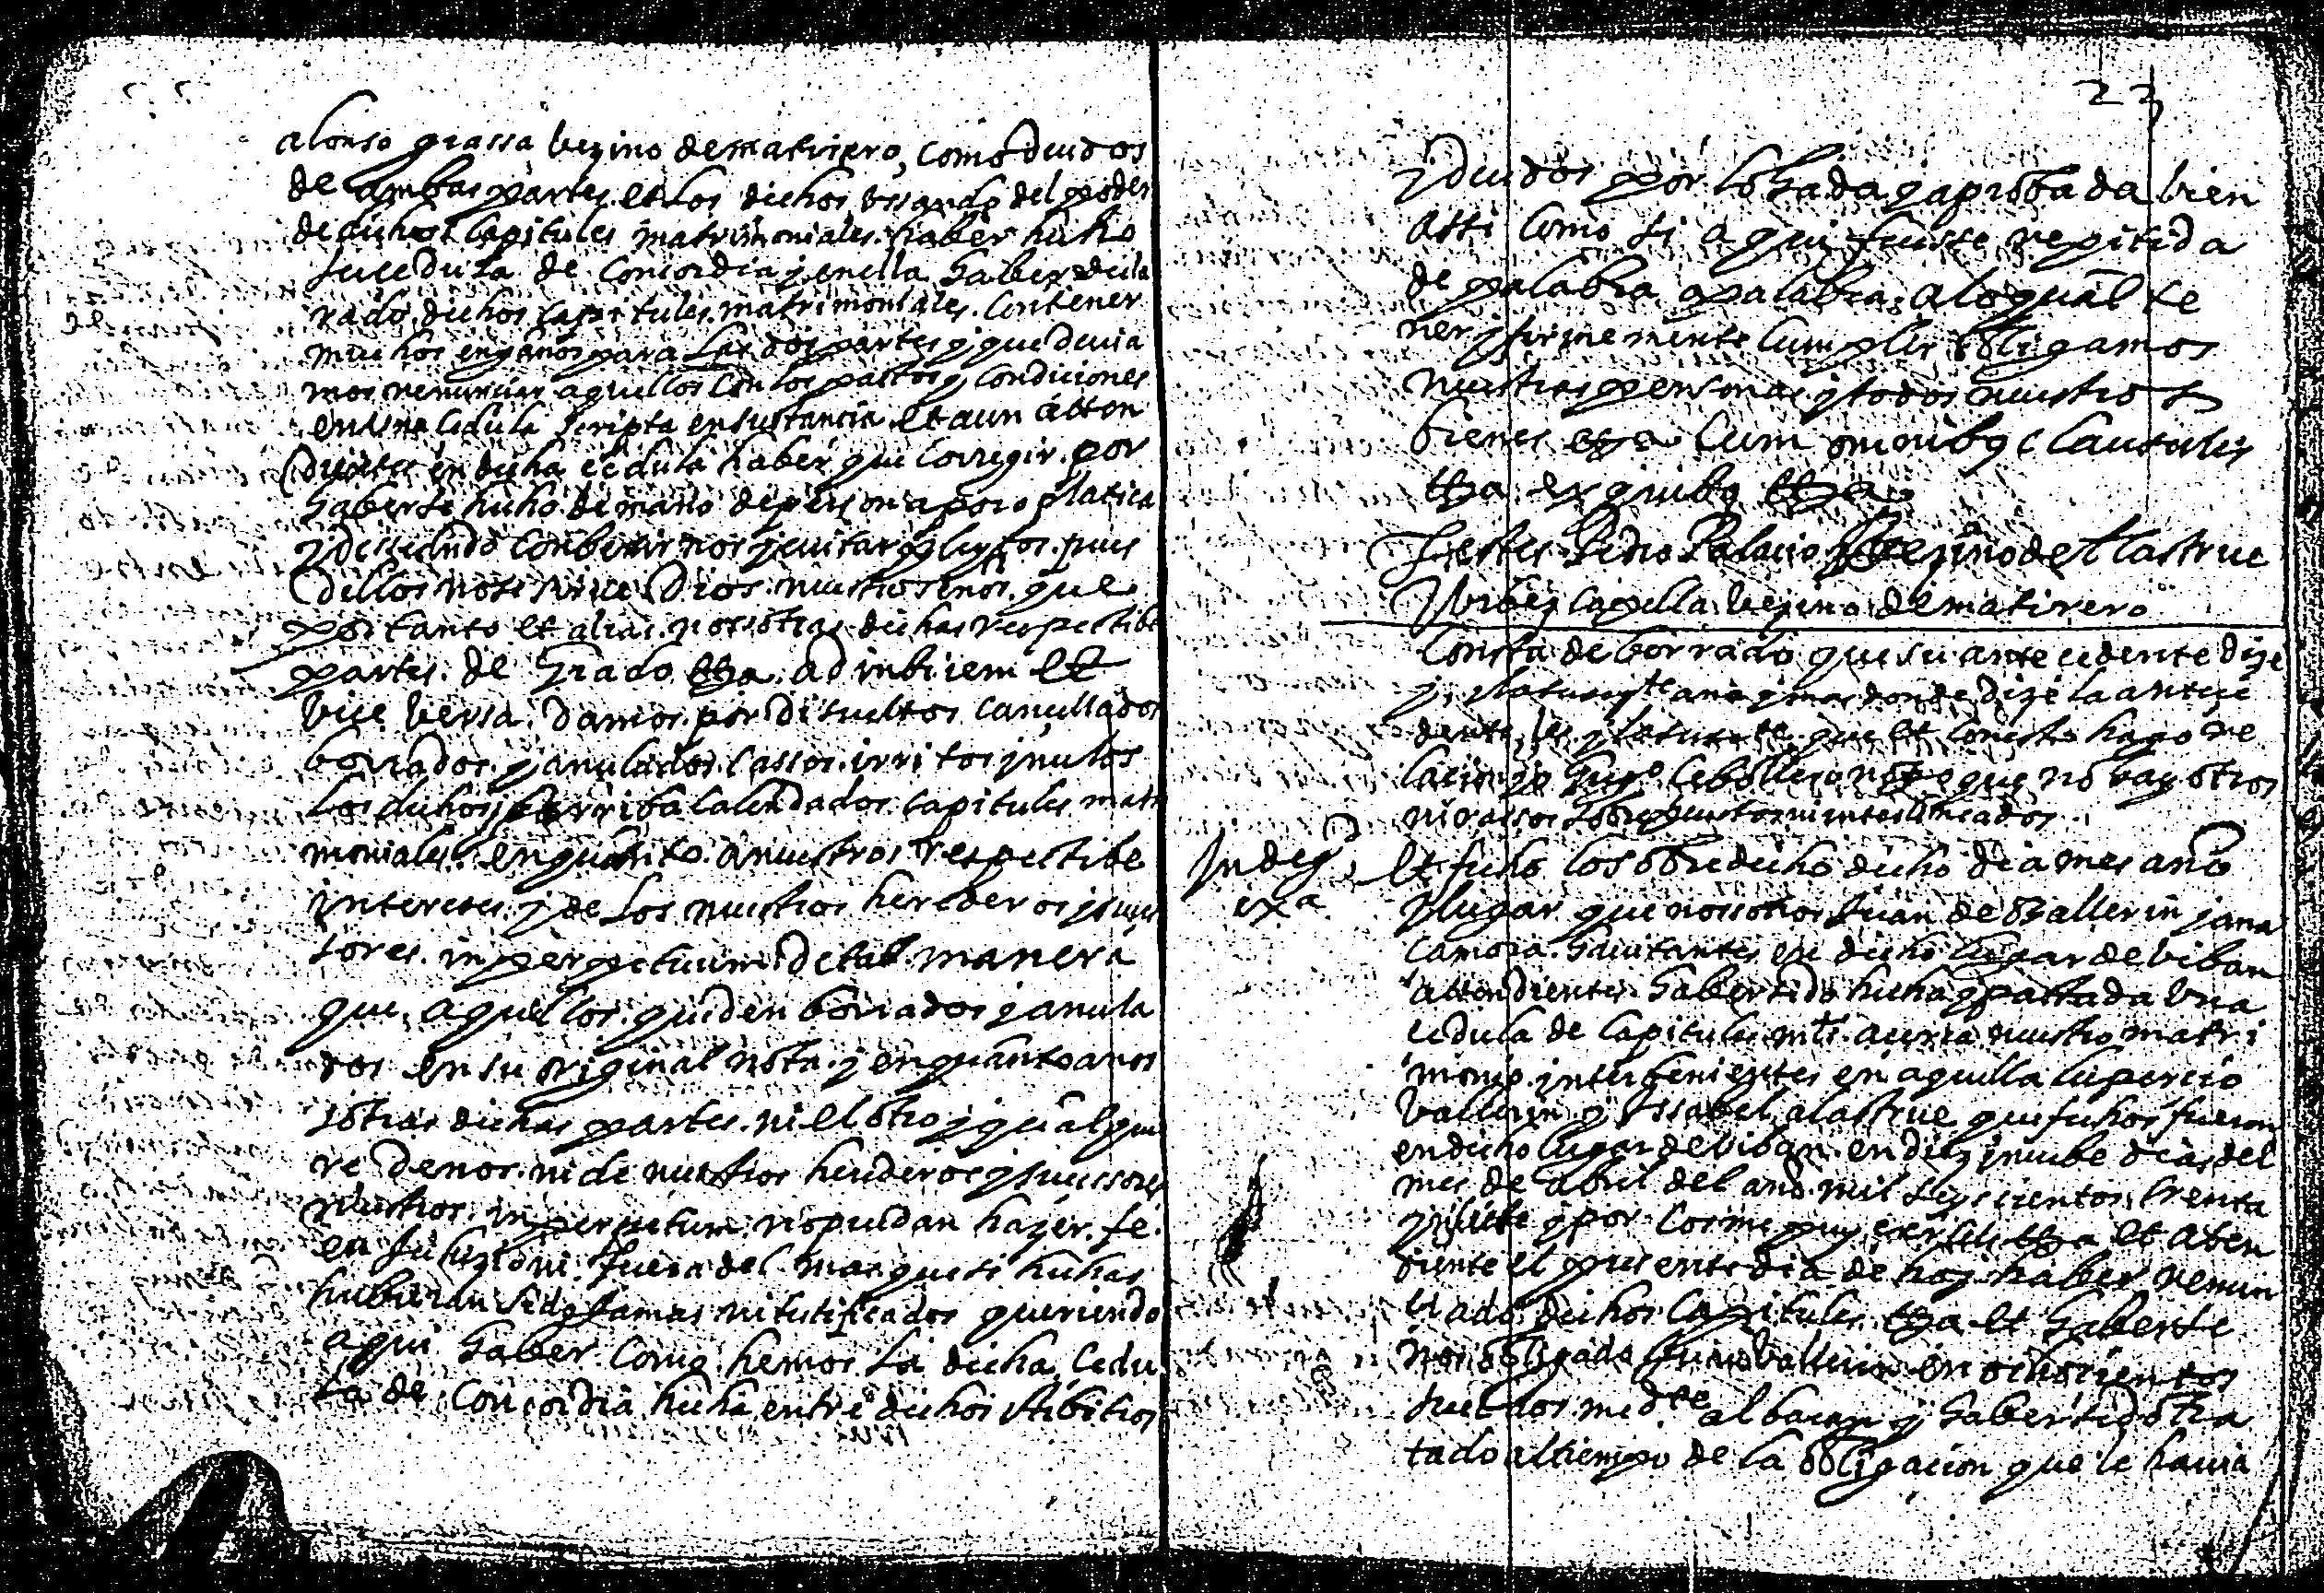 alonso grassa vezino de matirero, como deudos
de ambas partes. et los dichos ussando del poder
de dichos Capitules matrimoniales. haber hecho
su cedula de Concordia y en ella haber decla
rado dichos capitules matrimoniales. Contener
muchos engaños para las dos partes y que devia
mos renunciar aquellos con los pactos y Condiciones
en una cedula scripta en sustancia et aun atten
dientes en dicha cedula haber que corregir. por
haberse hecho de mano de persona poco platica
y desseando conbenirnos y evitar pleytos. pues
dellos no se sirve Dios nuestro señor. que
por tanto et alias. nosotras dichas respectibe
partes. de Grado etza. ad invicem et
vice versa. Damos por disueltos cancellados
borrados. y anulados. Cassos. irritos y nulos
los dichos y arriba Calendados capitules matri
moniales. en quanto a nuestros respectibe
intereses. y de los nuestros herederos y suces
sores. in perpetuum. De tal manera
que aquellos. queden borrados y anula
dos en su original nota. y en quanto a nos
sotras dichas partes. ni el otro y qualquie
re de nos. ni de nuestros herederos y sucessores
nuestros. in perpetuum. no puedan hazer. fe.
en juhizio ni fuera del. mas que si hechas
hubieran sido jamas ni testificados queriendo
aqui haber. Como. hemos la dicha Cedu
la de Concordia hecha entre dichos Arbitros
23
y deudos por lohada y aprobada bien
assi como si aqui fuesse repitida
de palabra a palabra, a lo qual te
ner y firmemente Cumplir obligamos
nuestras personas y todos nuestros
bienes etza Cum omnibus Clausulis
etza ex quibus etza
Testes Pedro Palacio vezino de Alastrue
y capella vezino de matirero
Consta de borrado que su antecedente dize
y mas donde dize la antece
dente que et consta hago re
lacion yo Cebollero que no hay otros
ni rassos sobrepuestos ni interlineados
Indeg. ixa
Et fecho lo sobredicho dicho dia mes año
y lugar que nossotros Juan de Vallerin y ana
Camora. havitantes en dicho lugar de biban
attendientes haber sido hecha y pactada una
cedula de Capitules mles. acerca nuestro matri
monio. interbenientes en aquella lupercio
Vallerin y Issabel alastrue que fechos fueron
en dicho lugar de biban. en diez y nuebe dias del
mes de abril del año mil seys cientos trenta
y siete y por Cosme etza et aten
diente el presente dia de hoy. haber renun
ciado dichos Capitules etza et haberse
nos obligado Juan Vallerin en ochocientos
sueldos medte albaran y haber sido tra
tado al tiempo de la obligacion que le havia